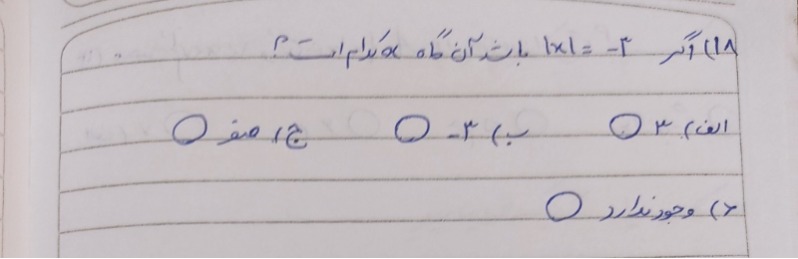 ۱۸) اگر |x| = -۳ باشد آن گاه x کدام است؟
الف) ۳ ب) -۳ ج) صفر
د) وجود ندارد